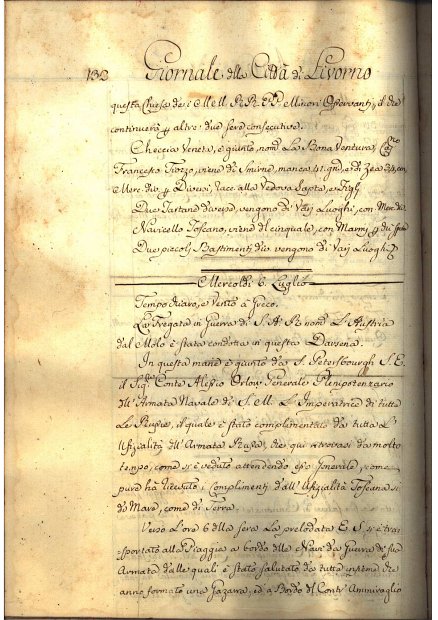 132 Giornale della Città di Livorno
questa Chiesa de i M M R R P P Minori Osservanti, il che
continuerà p altre due sere consecutive.
Checcia Veneta, è giunto, nom La Bona Ventura, Cap
Francesco viene di Smirne, manca 41 gni, e di Zea 34, con
Merc div p Diversi, racc alla Vedova e Figlj
Due Tartane diverse, vengono di Varj Luoghi, con Merc div
Navicello Toscano, viene del cinquale, con Marmj p
Due piccolj Bastimentj che vengono di Varj Luoghj
Mercoldi 6. Luglio
Tempo chiaro, e Vento à Greco.
La Fregata in Guerra di S. A. R. nom L'Austria
dal Molo è stata condotta in questa Darsena.
In questa mane è giunto da S. Petersbourgh S. E.
il Sigr Conte Alessio Orlow Generale Plenipotenzario
dell'Armata Navale di S. M. L'Imperatrice di tutte
Le Russie, il quale è stato complimentato da tutta L'
Ufizialità dell'Armata Russa, che qui ritrovasi da molto
tempo, come si è veduto attendendo esso Generale, come
pure hà ricevuto i complimenti dall'Ufizialità Toscana sì
di Mare, come di Terra.
Verso L'ore 6 della sera La prelodata E. S. si è tras
sportato alla Piaggia a bordo delle Navi da Guerra di sua
Armata dalle quali è stato salutato da tutte insieme che
anno formato una Gazarra, ed a Bordo del Contr'Ammiraglio